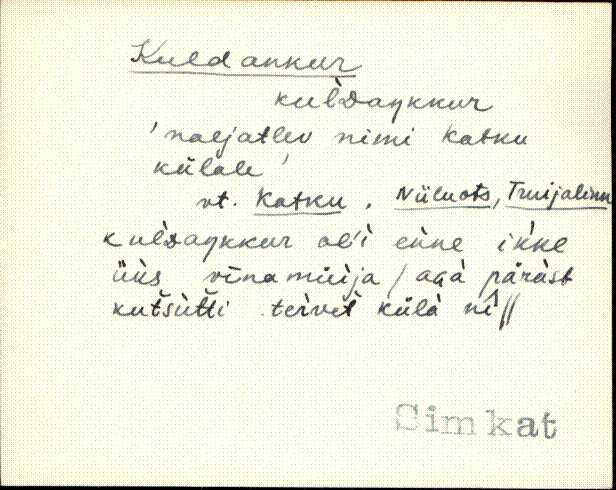 Kuldankur
kulʹdaŋkkur
'naljatlev nimi Katku
külale'
vt. Katku, Niiluots, Truijalinn
kulʹdaŋkkur olʹlʹi enne ikke
üüs vīnamüija / aga pärast
kutʹsutʹti tervet külä nī //
Simkat